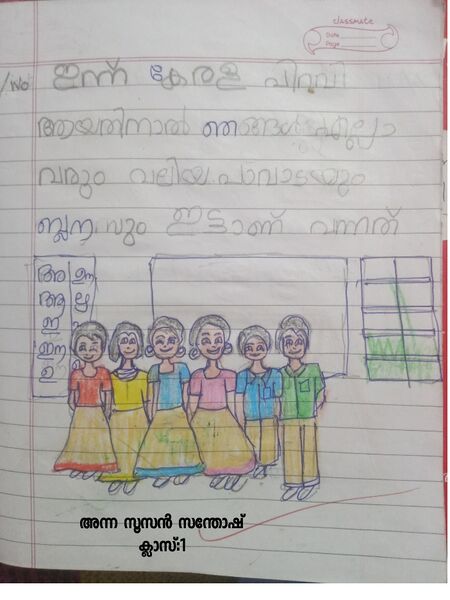 classmate
Date
Page
ഇന്ന് കേരള പിറവി
ആയതിനാൽ ഞങ്ങൾ എല്ലാ
വരും വലിയ പാവാടയും
ബ്ലൗസും ഇട്ടാണ് വന്നത്
അ ഊ
ആ
ഇ
ഈ
ഉ
അന്ന സൂസൻ സന്തോഷ്
ക്ലാസ്:1